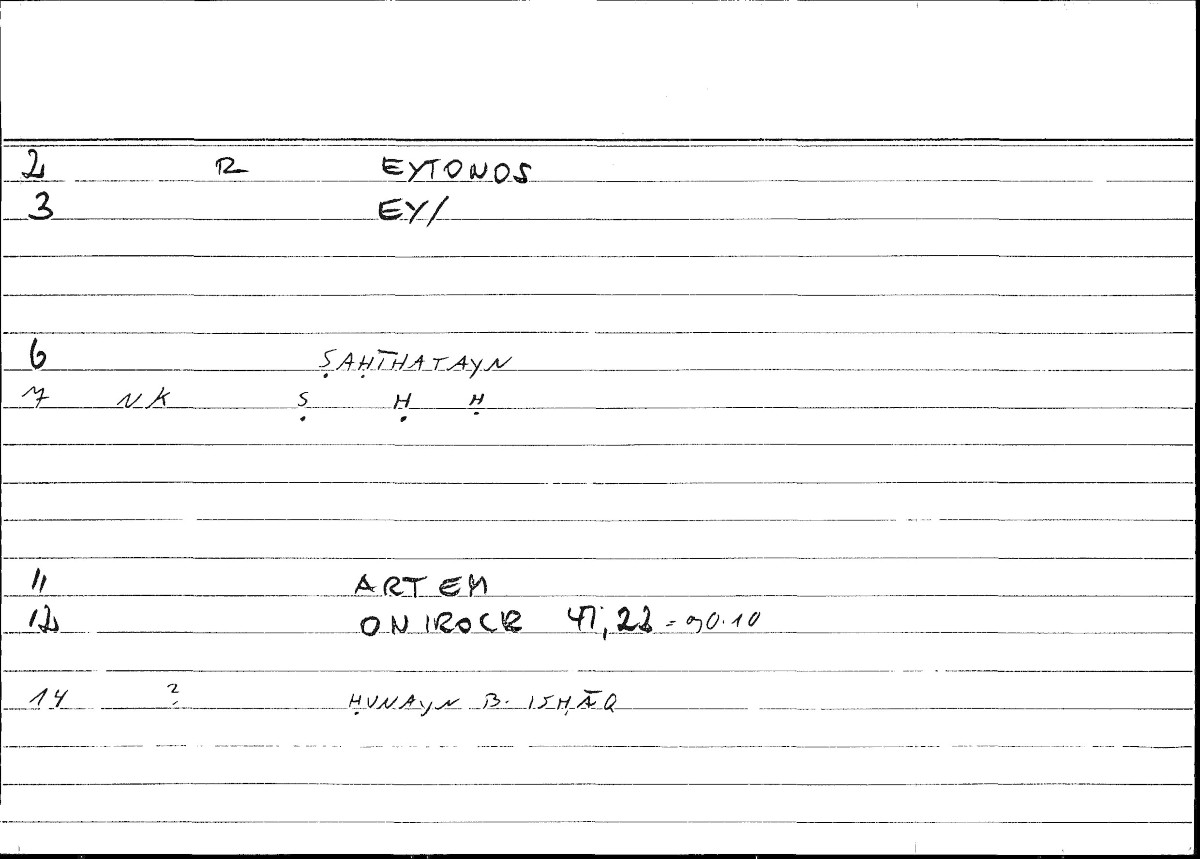 2 R EYTONOS
3 EY/
6 ṢAḤĪHATAYN
7 NK Ṣ Ḥ Ḥ
11 ARTEM
12 ONIROCR 47,22 = 90.10
14 ? ḤUNAYN B. ISḤĀQ